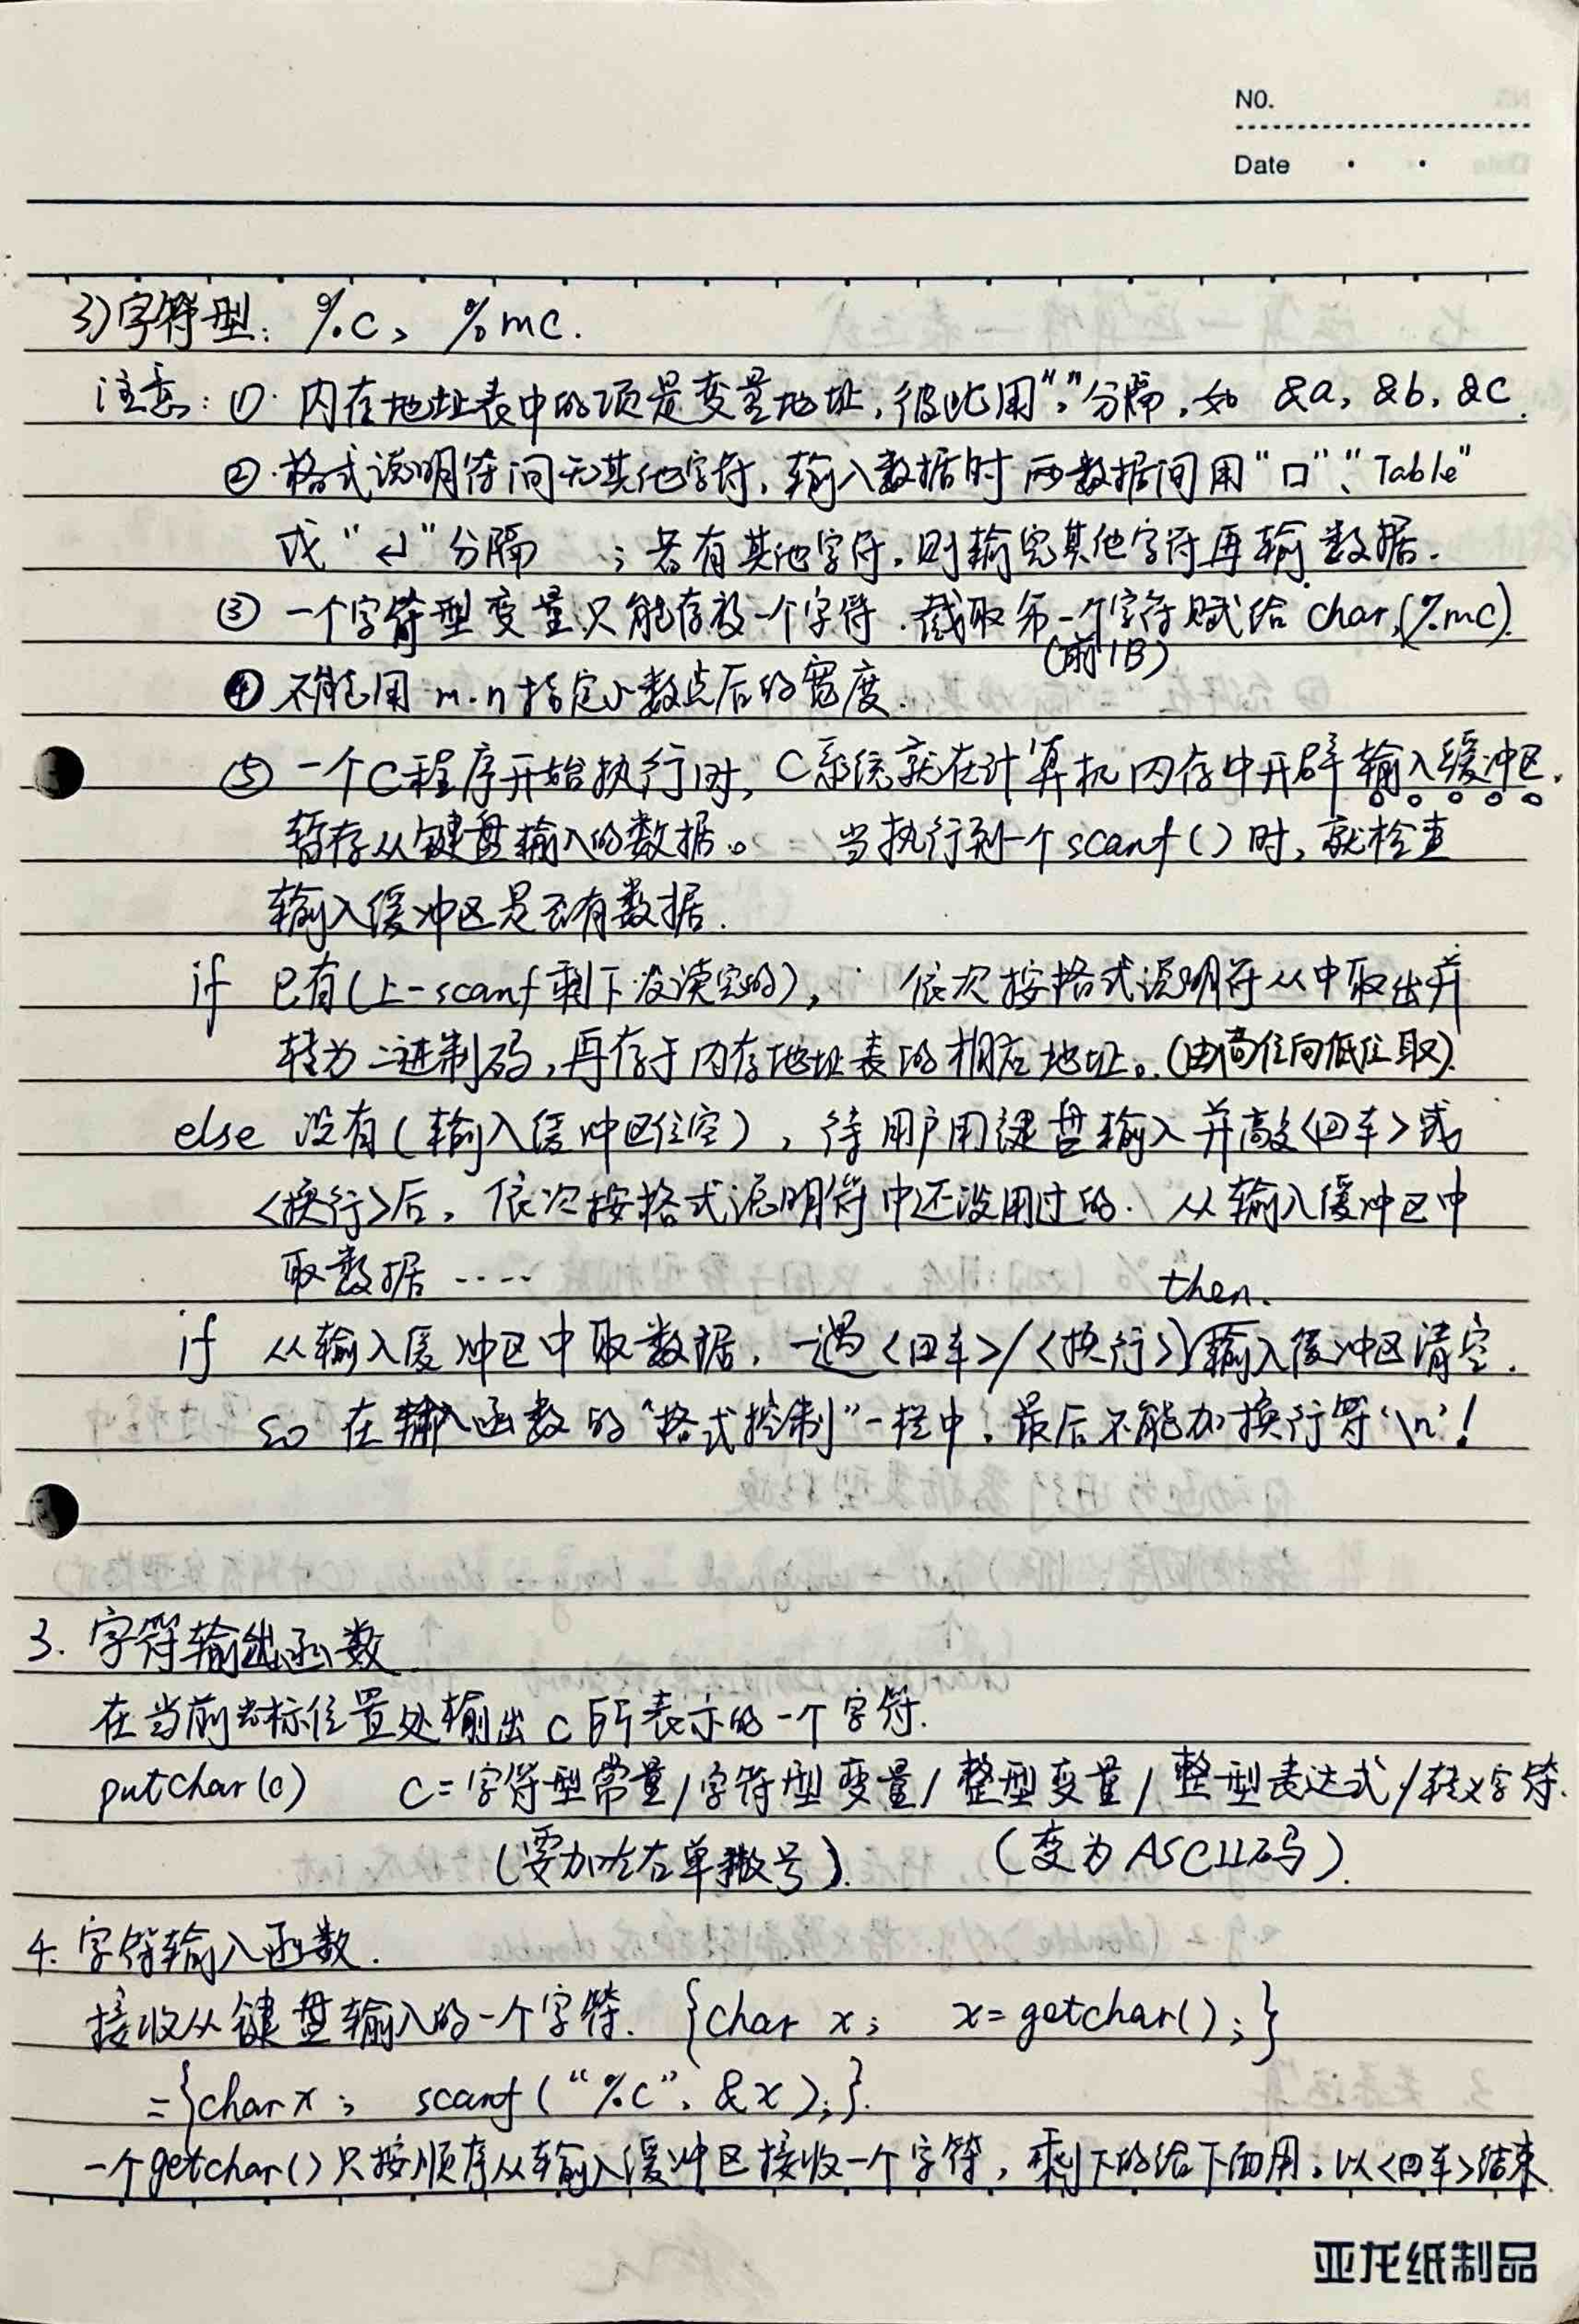 NO.
Date
3)字符型: %c, %mc.
注意: ①. 内存地址表中的项是变量地址,彼此用","分隔,如 &a, &b, &c.
②.格式说明符间无其他字符,输入数据时两数据间用"口"、"Table"
或"↵"分隔 ;若有其他字符,则输完其他字符再输数据.
③ 一个字符型变量只能存放一个字符.截取第一个字符赋给char,(%mc).
(前1B)
④不能用m.n指定小数点后的宽度.
⑤ 一个C程序开始执行时,C系统就在计算机内存中开辟输入缓冲区,
暂存从键盘输入的数据。 当执行到一个scanf()时,就检查
输入缓冲区是否有数据.
if 已有(上一scanf剩下没读完的), 依次按格式说明符从中取出并
转为二进制码,再存于内存地址表的相应地址。(由高位向低位取).
else 没有(输入缓冲区位空),待用户用键盘输入并敲<回车>或
<换行>后,依次按格式说明符中还没用过的. 从输入缓冲区中
取数据 ·····
then.
if 从输入缓冲区中取数据,一遇<回车>/<换行>)输入缓冲区清空.
so 在输入函数的"格式控制"一栏中,最后不能加换行符'\n'!
3. 字符输出函数.
在当前光标位置处输出c所表示的一个字符.
putchar(c) C=字符型常量/字符型变量/整型变量/整型表达式/转义字符.
(要加左右单撇号). (变为ASCII码).
4. 字符输入函数.
接收从键盘输入的一个字符. {char x; x=getchar();}
={char x; scanf("%c", &x);}.
一个getchar()只按顺序从输入缓冲区接收一个字符,剩下的给下面用,以<回车>结束.
亚龙纸制品